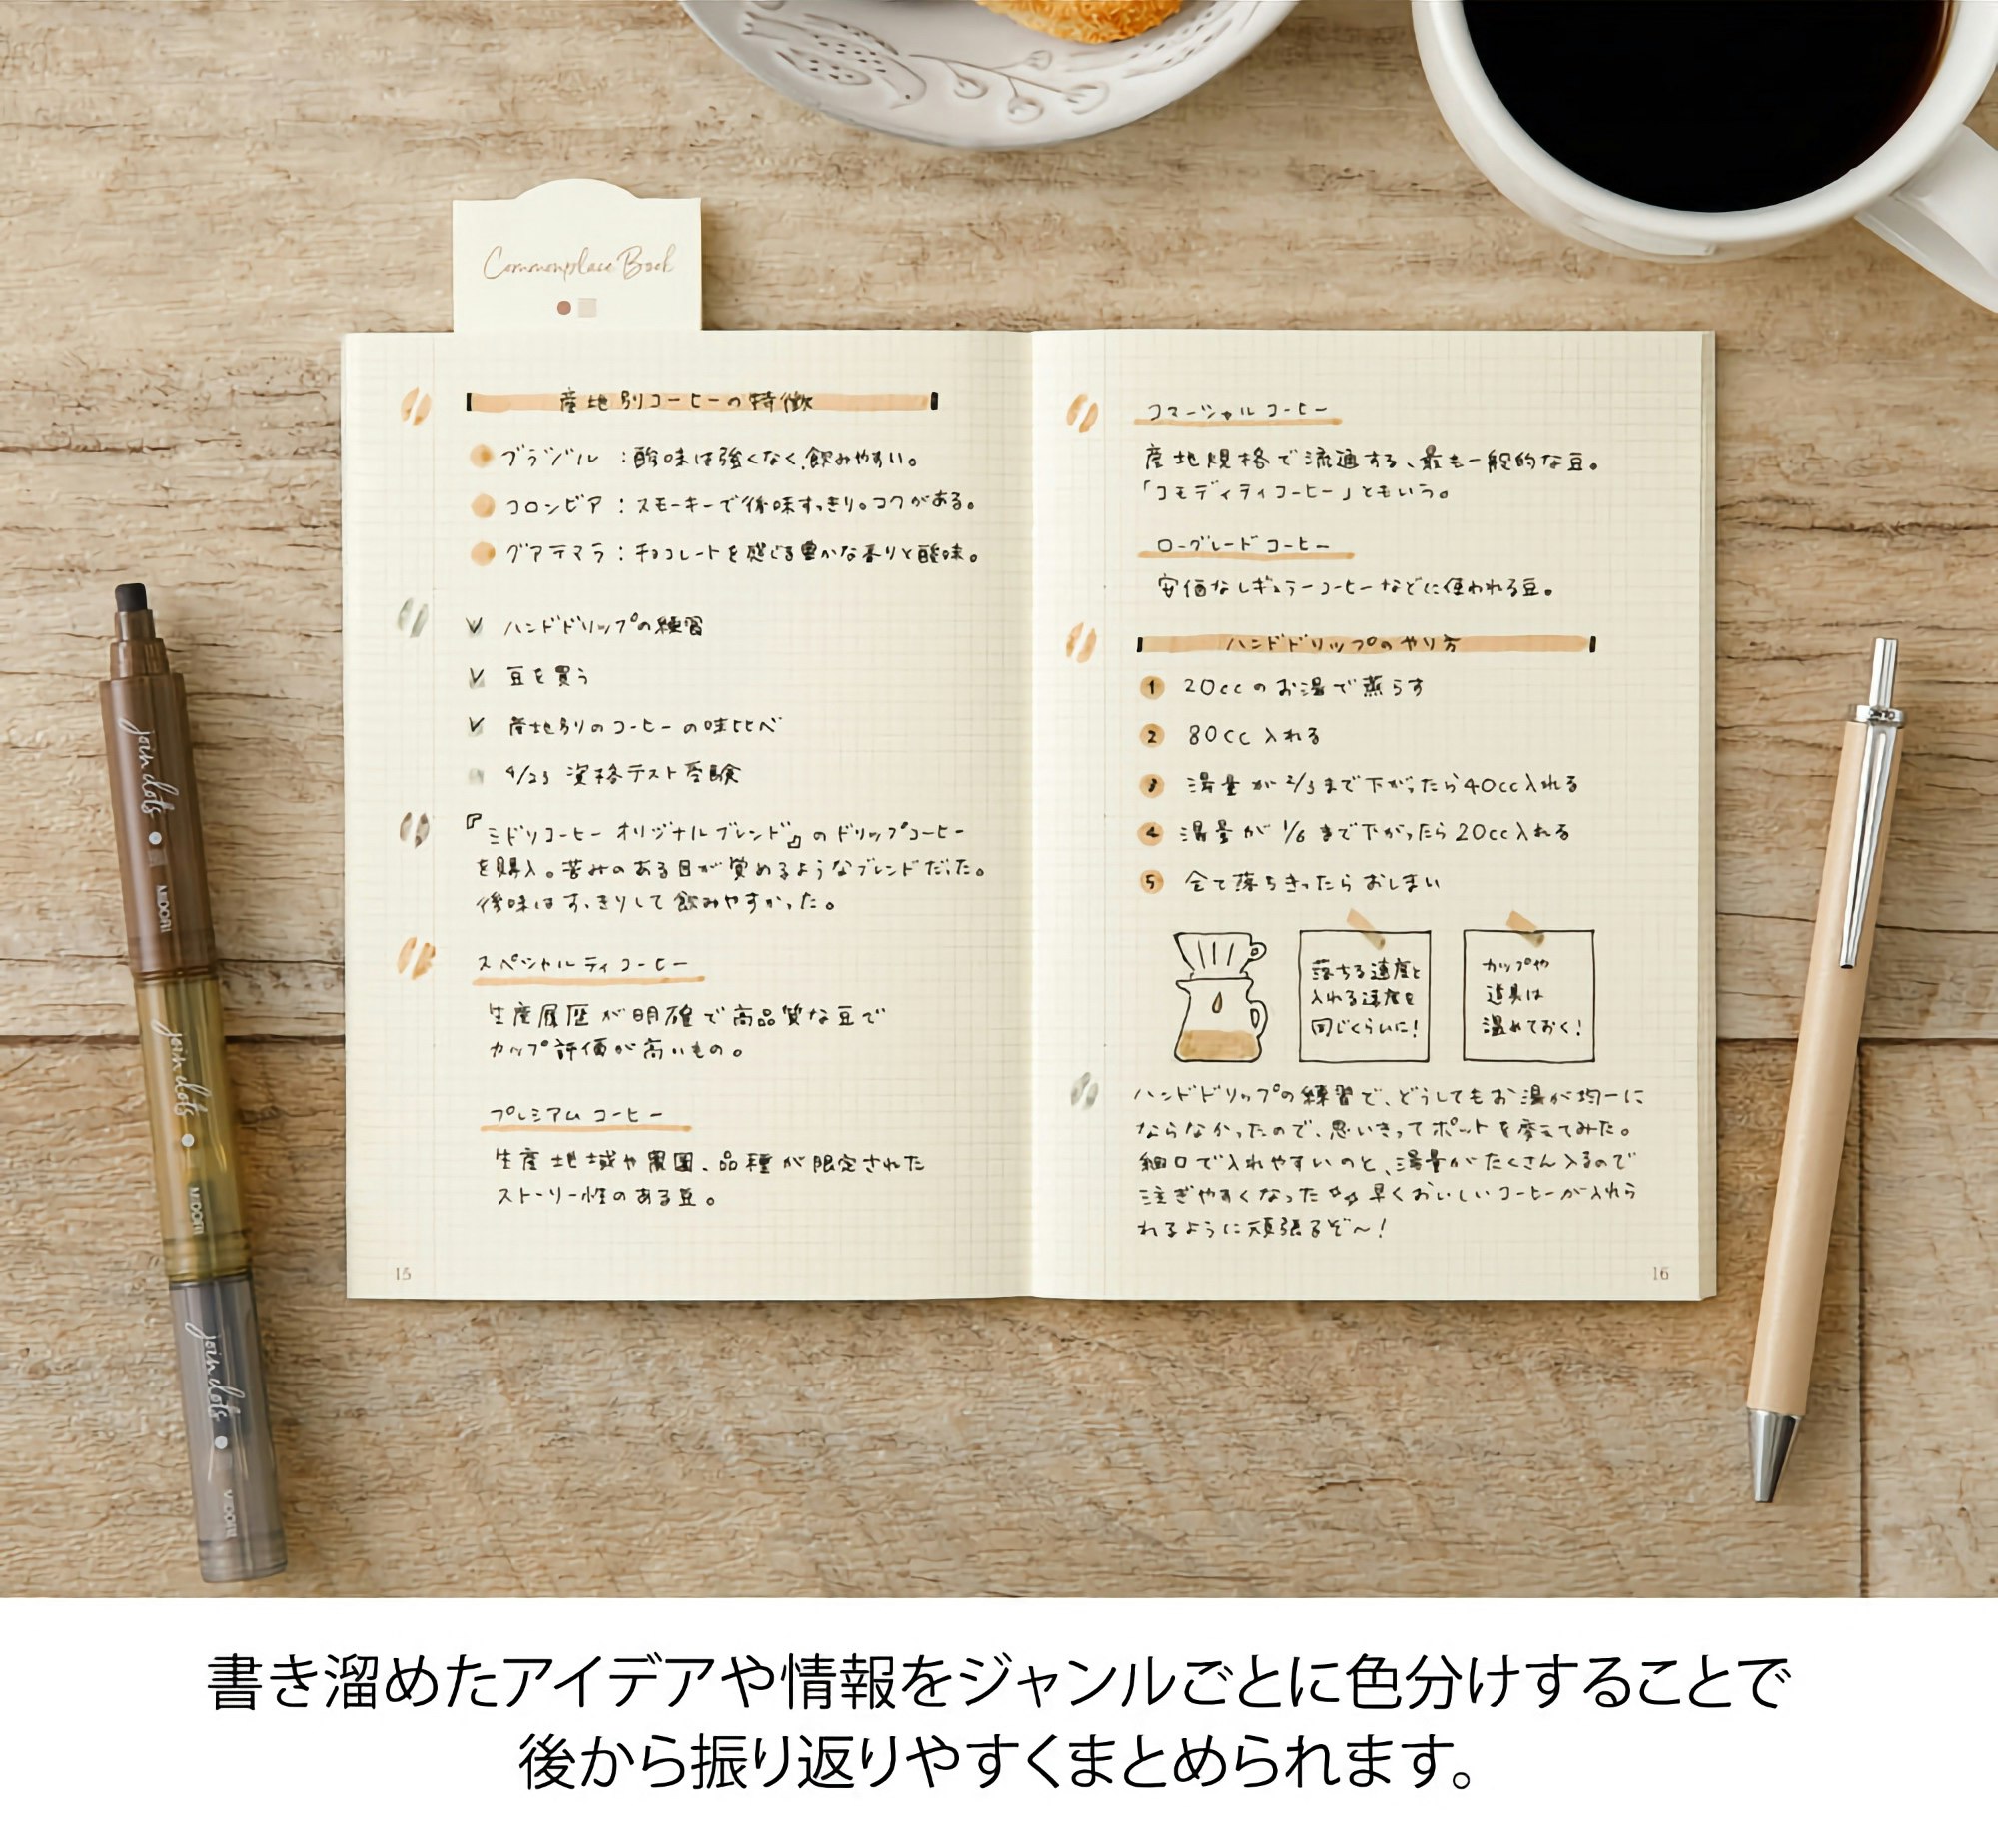 Commonplace Book
産地別コーヒーの特徴
ブラジル：酸味は強くなく、飲みやすい。
コロンビア：スモーキーで後味すっきり。コクがある。
グアテマラ：チョコレートを感じる豊かな香りと酸味。
ハンドドリップの練習
豆を買う
産地別のコーヒーの味比べ
4/23 資格テスト受験
『ミドリコーヒー オリジナルブレンド』のドリップコーヒー
を購入。苦みのある目が覚めるようなブレンドだった。
後味はすっきりして飲みやすかった。
スペシャルティコーヒー
生産履歴が明確で高品質な豆で
カップ評価が高いもの。
プレミアムコーヒー
生産地域や農園、品種が限定された
ストーリー性のある豆。
15
コマーシャルコーヒー
産地規格で流通する、最も一般的な豆。
「コモディティコーヒー」ともいう。
ローグレードコーヒー
安価なレギュラーコーヒーなどに使われる豆。
ハンドドリップのやり方
1 20ccのお湯で蒸らす
2 80cc 入れる
3 湯量が2/3まで下がったら40cc入れる
4 湯量が1/6まで下がったら20cc入れる
5 全て落ちきったらおしまい
落ちる速度と
入れる速度を
同じくらいに!
カップや
道具は
温めておく!
ハンドドリップの練習で、どうしてもお湯が均一に
ならなかったので、思いきってポットを変えてみた。
細口で入れやすいのと、湯量がたくさん入るので
注ぎやすくなった 早くおいしいコーヒーが入れら
れるように頑張るぞ〜!
16
join dots
MIDORI
join dots
MIDORI
join dots
MIDORI
書き溜めたアイデアや情報をジャンルごとに色分けすることで
後から振り返りやすくまとめられます。